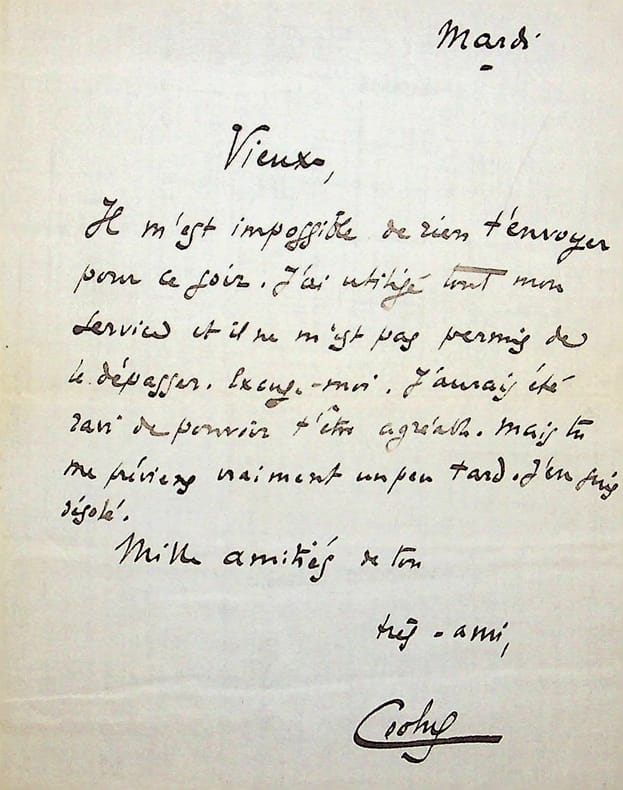 Mardi
Vieux,
Il m'est impossible de rien t'envoyer
pour ce soir. J'ai utilisé tout mon
service et il ne m'est pas permis de
le dépasser. Excuse-moi. J'aurais été
ravi de pouvoir t'être agréable. Mais tu
me préviens vraiment un peu tard. J'en suis
désolé.
Mille amitiés de ton
très-ami,
Coolus